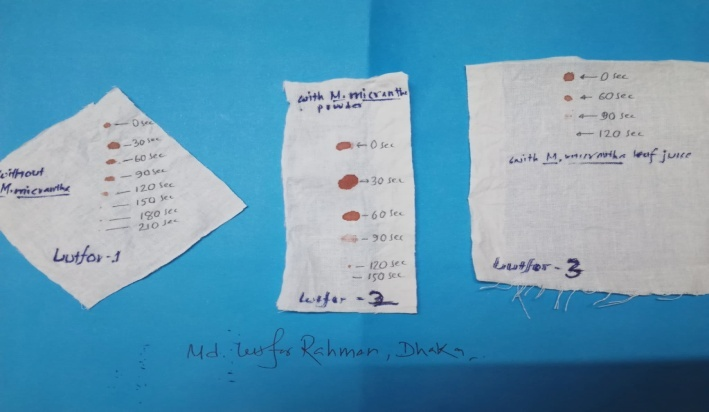 0 sec
30 sec
60 sec
90 sec
120 sec
150 sec
180 sec
210 sec
without
M. micrantha
Lutfor-1
with M. micrantha
powder
0 sec
30 sec
60 sec
90 sec
120 sec
150 sec
Lutfor - 2
0 sec
60 sec
90 sec
120 sec
with M. micrantha leaf juice
Lutfor - 3
Md. Lutfor Rahman, Dhaka